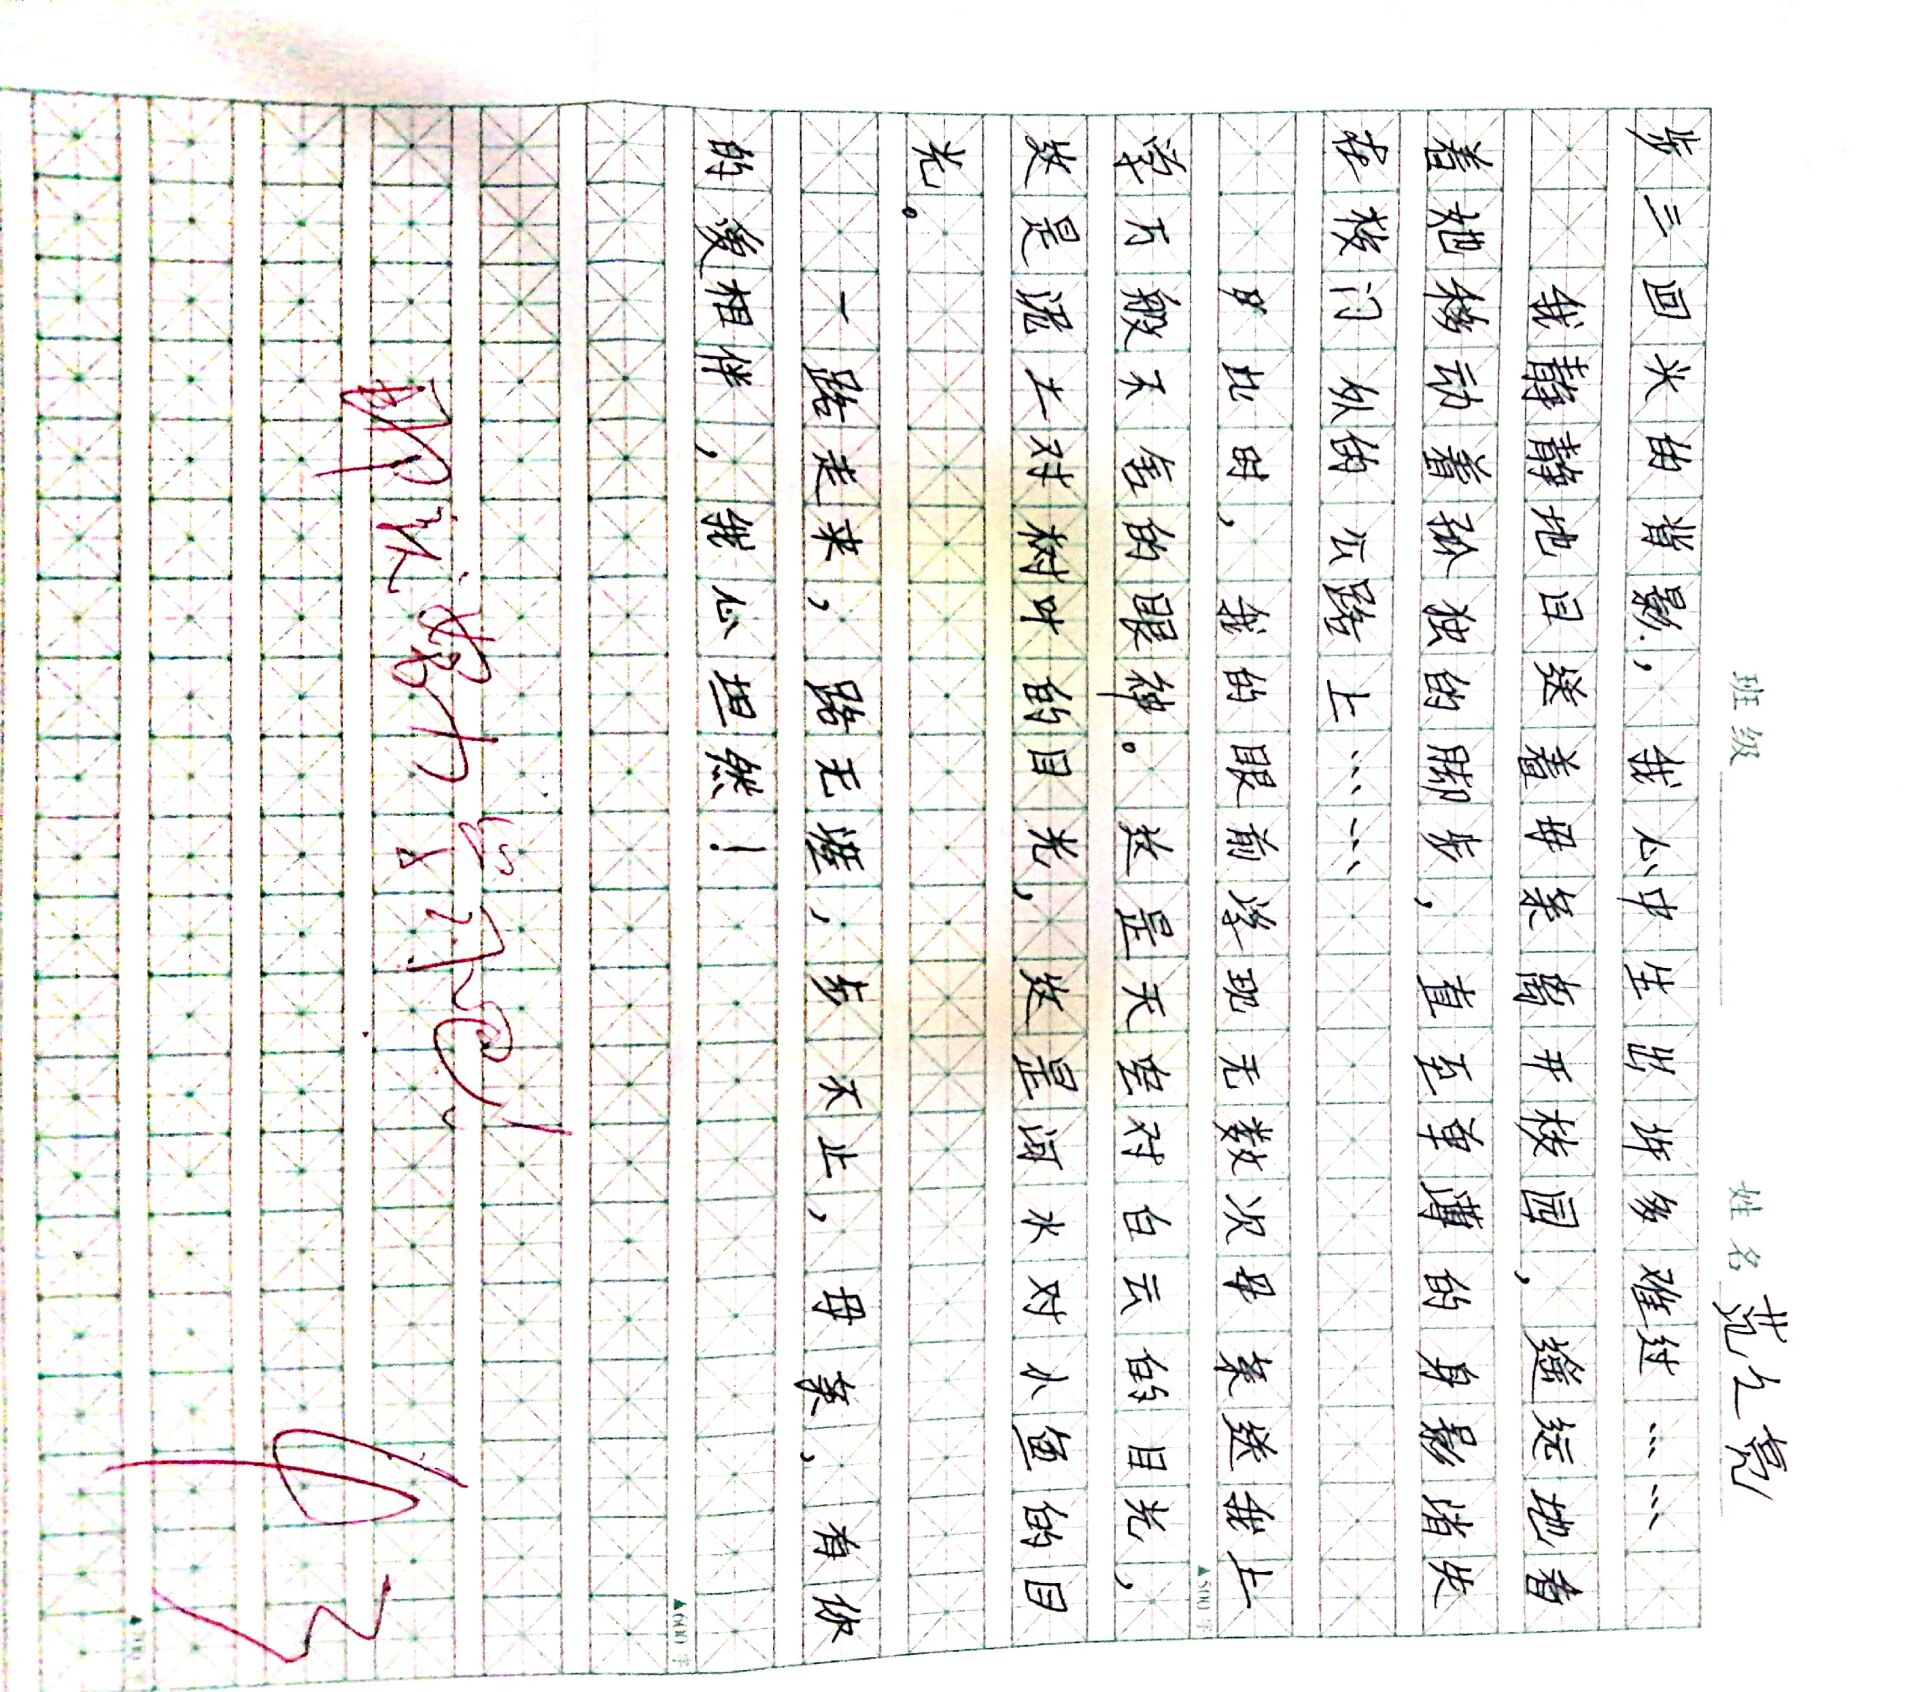 班级 姓名
步三回头的背影，我心中生出许多难过……
我静静地目送着母亲离开校园，遥远地看
着她移动着孤独的脚步，直至单薄的身影消失
在校门外的公路上……
此时，我的眼前浮现无数次母亲送我上
学万般不舍的眼神。这是天空对白云的目光，
这是泥土对树叶的目光，这是河水对小鱼的目
▲500字
光。
一路走来，路无涯，步不止，母亲，有你
的爱相伴，我心坦然！
▲600字